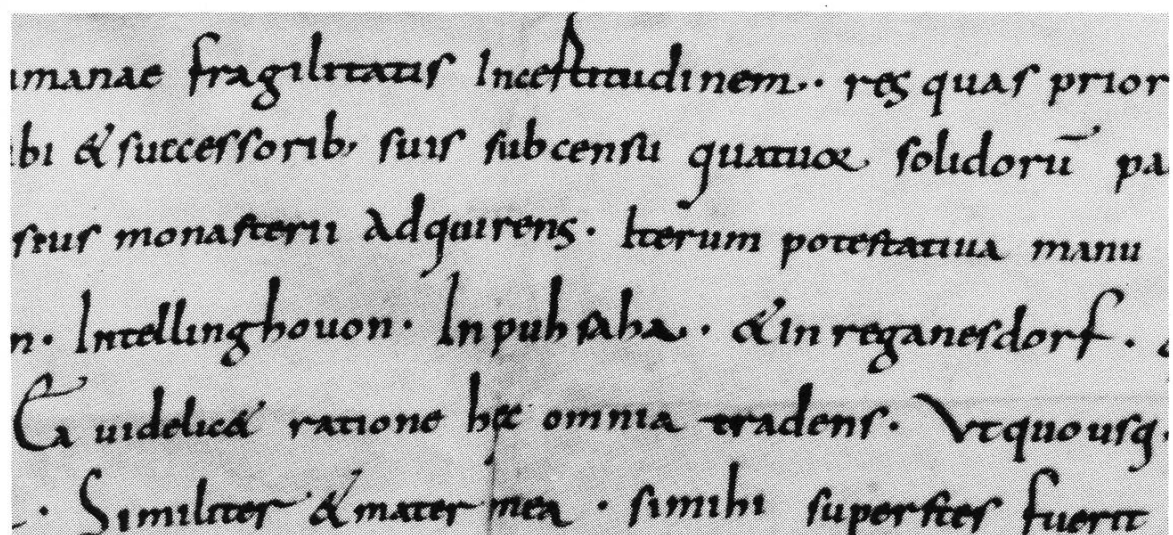 umanae fragilitatis Incertitudinem.. res quas prior
ibi & successorib; suis sub censu quatuor solidorū pa
sius monasterii adquirens. Iterum potestatiua manu
n. Intellinghouon. In puhsaha. & in reganesdorf.
Ea uidelic& ratione hęc omnia tradens. Vt quousq.
. Similiter & mater mea. si mihi superstes fuerit